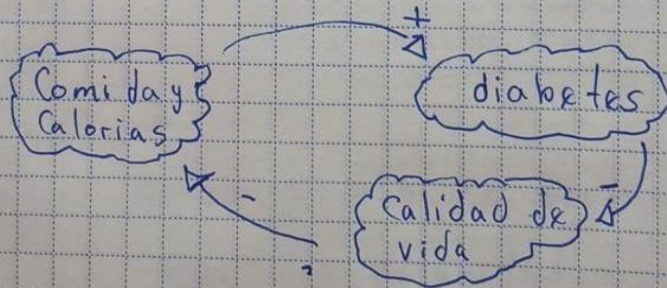 +
Comida y
Calorias
diabetes
-
-
Calidad de
vida